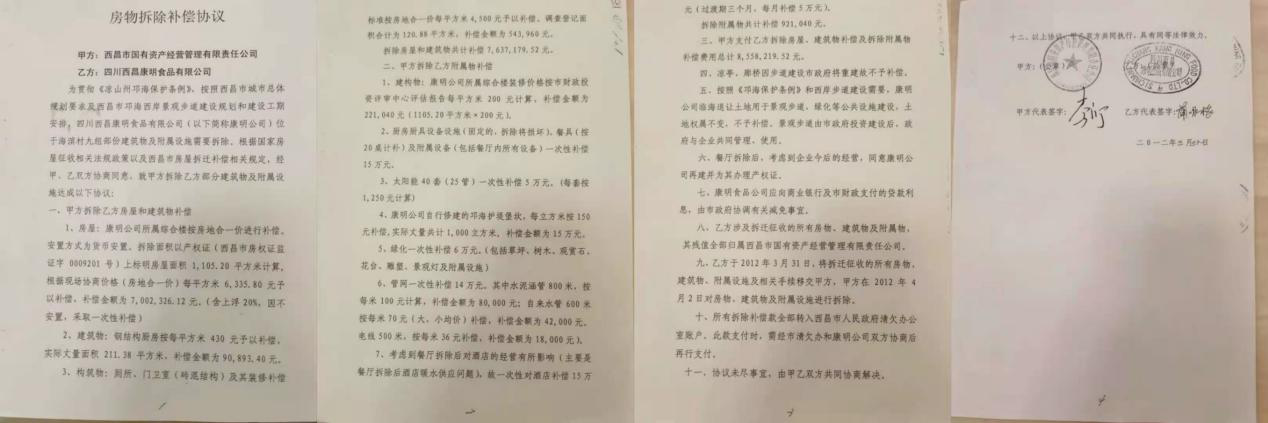 房物拆除补偿协议
甲方：西昌市国有资产经营管理有限责任公司
乙方：四川西昌康明食品有限公司
为贯彻《凉山州邛海保护条例》、按照西昌城市总体
规划要求及西昌市邛海西岸景观步道建设规划和建设工期
安排，四川西昌康明食品有限公司（以下简称康明公司）位
于海滨村九组部份建筑物及附属设施需要拆除。根据国家房
屋征收相关法规政策以及西昌市房屋拆迁补偿相关规定，经
甲、乙双方协商同意，就甲方拆除乙方部分建筑物及附属设
施达成以下协议：
一、甲方拆除乙方房屋和建筑物补偿
1、房屋：康明公司所属综合楼按房地合一价进行补偿。
安置方式为货币安置。拆除面积以产权证（西昌市房权证监
证字 0009201 号）上标明房屋面积 1,105.20 平方米计算，
根据现场协商价格（房地合一价）每平方米 6,335.80 元予
以补偿，补偿金额为 7,002,326.12 元。（含上浮 20%，因不
安置，采取一次性补偿）
2、建筑物：钢结构厨房按每平方米 430 元予以补偿。
实际丈量面积 211.38 平方米，补偿金额为 90,893.40 元。
3、构筑物：厕所、门卫室（砖混结构）及其装修补偿
1
标准按房地合一价每平方米 4,500 元予以补偿，调查登记面
积合计为 120.88 平方米，补偿金额为 543,960 元。
拆除房屋和建筑物共计补偿 7,637,179.52 元。
二、甲方拆除乙方附属物补偿
1、建构物：康明公司所属综合楼装修价格按市财政投
资评审中心评估报告每平方米 200 元计算，补偿金额为
221,040 元（1105.20 平方米×200 元）。
2、厨房厨具设备设施（固定的，拆除将损坏）、餐具（按
20 桌计补）及附属设备（包括餐厅内所有设备）一次性补偿
15 万元。
3、太阳能 40 套（25 管）一次性补偿 5 万元。（每套按
1,250 元计算）
4、康明公司自行修建的邛海护堤堡坎，每立方米按 150
元补偿，实际丈量共计 1,000 立方米，补偿金额为 15 万元。
5、绿化一次性补偿 6 万元。（包括草坪、树木、观赏石、
花台、雕塑、景观灯及附属设施）
6、管网一次性补偿 14 万元。其中水泥涵管 800 米，按
每米 100 元计算，补偿金额为 80,000 元；自来水管 600 米
按每米 70 元（大、小均价）补偿，补偿金额为 42,000 元。
电线 500 米，按每米 36 元补偿，补偿金额为 18,000 元）。
7、考虑到餐厅拆除后对酒店的经营有所影响（主要是
餐厅拆除后酒店暖水供应问题），故一次性对酒店补偿 15 万
2
元（过渡期三个月，每月补偿 5 万元）。
拆除附属物共计补偿 921,040 元。
三、甲方支付乙方拆除房屋、建筑物补偿及拆除附属物
补偿费用总计 8,558,219.52 元。
四、凉亭、廊桥因步道建设市政府将重建故不予补偿。
五、按照《邛海保护条例》和西昌步道建设需要，康明
公司临海退让土地用于景观步道、绿化等公共设施建设，土
地权属不变，不予补偿。景观步道由市政府投资建设后，政
府与企业共同管理、使用。
六、餐厅拆除后，考虑到企业今后的经营，同意康明公
司再建并为其办理产权证。
七、康明食品公司应向商业银行及市财政支付的贷款利
息，由市政府协调有关减免事宜。
八、乙方涉及拆迁征收的所有房物、建筑物及附属物，
其残值全部归属西昌市国有资产经营管理有限责任公司。
九、乙方于 2012 年 3 月 31 日，将拆迁征收的所有房物、
建筑物、附属设施及相关手续移交甲方，甲方在 2012 年 4
月 2 日对房物、建筑物及附属设施进行拆除。
十、所有拆除补偿款全部转入西昌市人民政府清欠办公
室账户。此款支付时，需经市清欠办和康明公司双方协商后
再行支付。
十一、协议未尽事宜，由甲乙双方共同协商解决。
3
十二、以上协议，甲乙双方共同执行，具有同等法律效力。
甲方：（公章）
甲方代表签字：
乙方代表签字：
二〇一二年三月
4